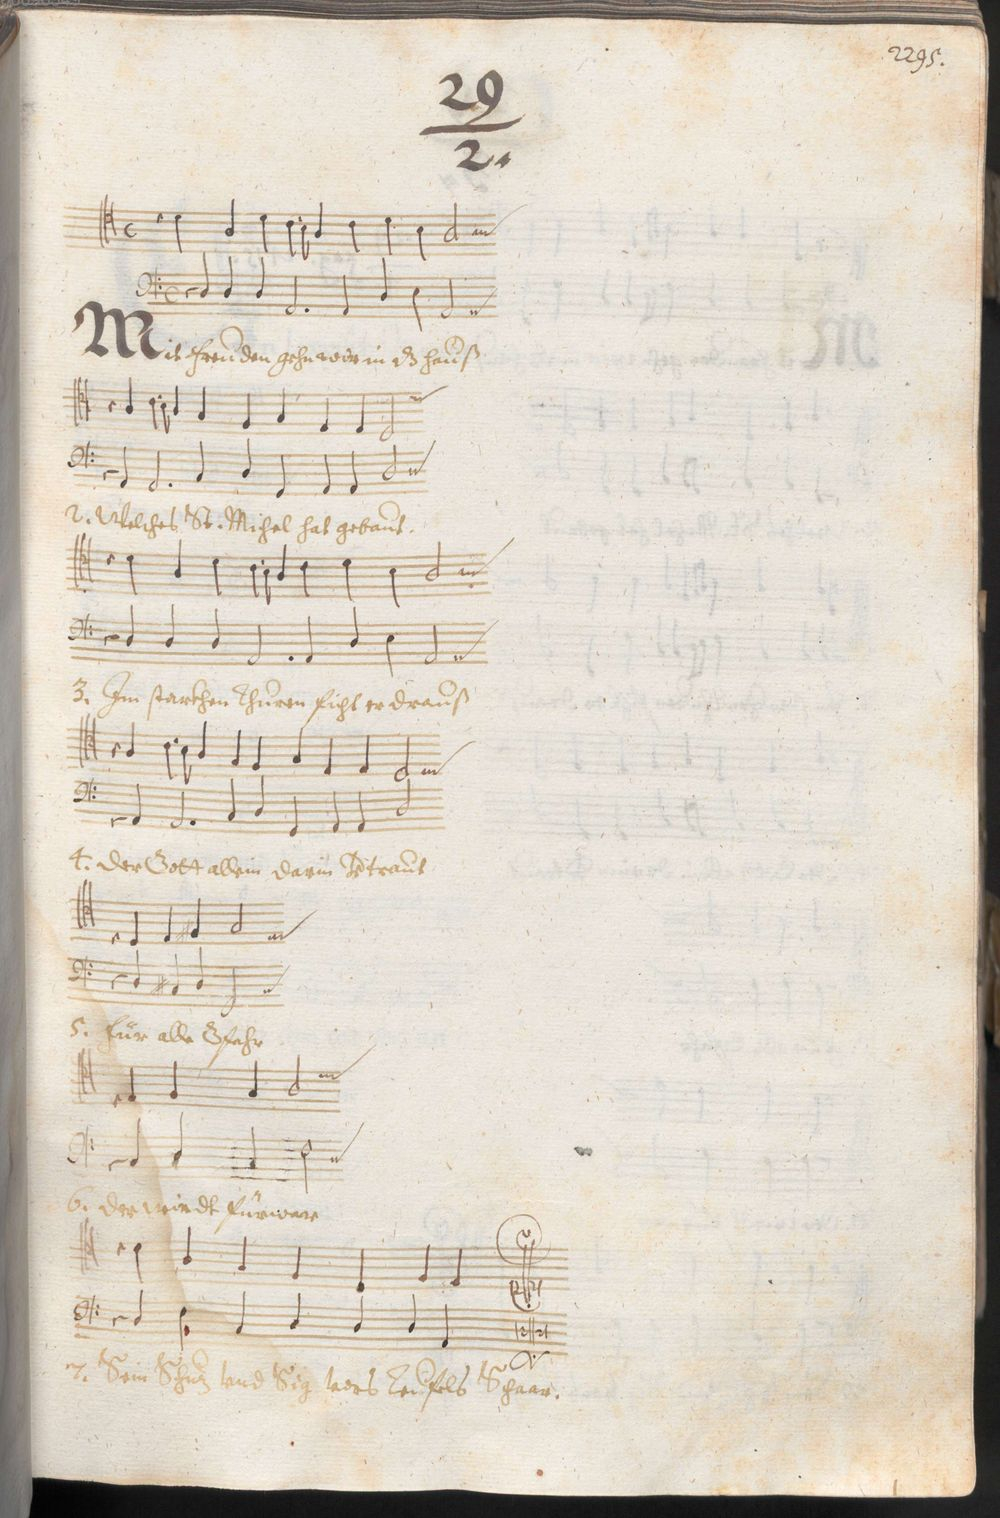 2295.
29
2.
Mit freuden gehn wir in dz hauß
2. Welches St. Michel hat gebaut.
3. Im starkhen Thuren ficht er drauß
4. Der Gott allein darin vertraut
5. Für alle Gfahr
6. Der windt fürwar
7. Sein Schutz und Sig
Teufels Schaar.